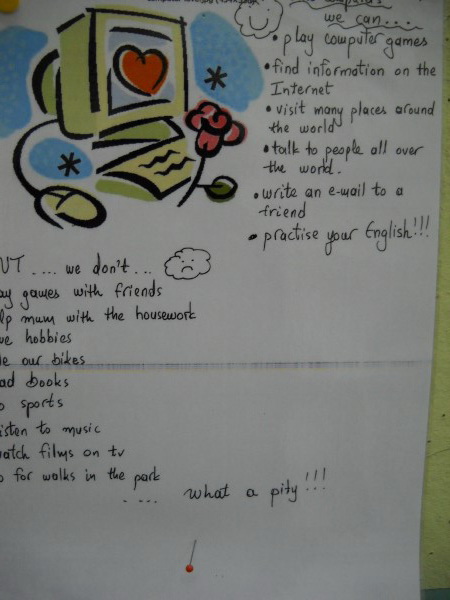 we can...
• play computer games
• find information on the
Internet
• visit many places around
the world
• talk to people all over
the world.
• write an e-mail to a
friend
• practise your English!!!
UT .... we don't...
ay games with friends
lp mum with the housework
ve hobbies
de our bikes
ad books
o sports
isten to music
watch films on tv
o for walks in the park
.... what a pity!!!